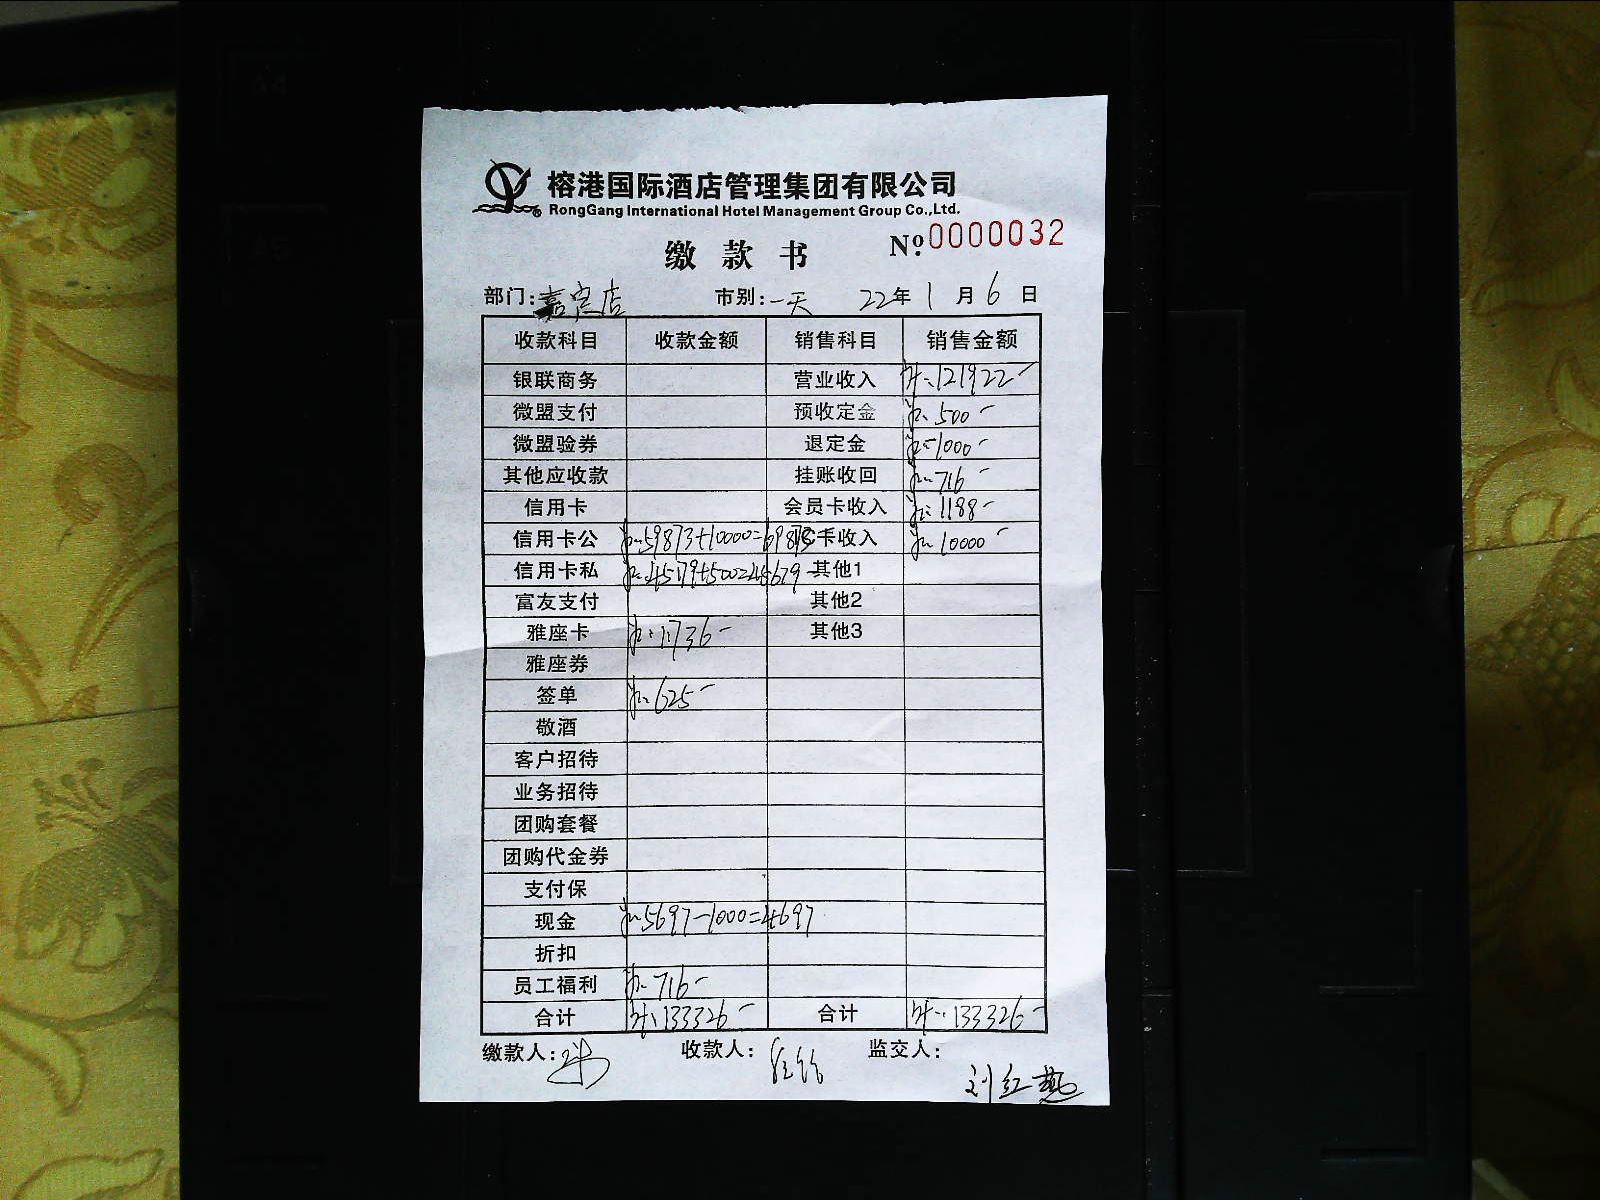 榕港国际酒店管理集团有限公司
RongGang International Hotel Management Group Co.,Ltd.
缴款书 Nº:0000032
部门:嘉定店 市别:一天 22年1月6日
收款科目 收款金额 销售科目 销售金额
银联商务 营业收入 121922-
微盟支付 预收定金 500-
微盟验券 退定金 -1000-
其他应收款 挂账收回 716-
信用卡 会员卡收入 1188-
信用卡公 59873+10000=69873 IC卡收入 10000-
信用卡私 45179+500=45679 其他1
富友支付 其他2
雅座卡 11736- 其他3
雅座券
签单 625-
敬酒
客户招待
业务招待
团购套餐
团购代金券
支付保
现金 5697-1000=4697
折扣
员工福利 716-
合计 133326- 合计 133326-
缴款人: 收款人: 监交人:
刘红艳